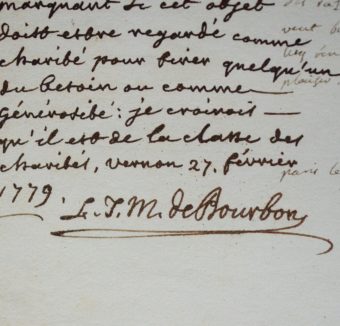 marquant si cet objet
doitt estre regardé comme
charibé pour tirer quelqu'un
du besoin ou comme
générosibé: je croirois —
qu'il est de la classe des
charibés, vernon 27. février
1779
L. J. M. de Bourbon